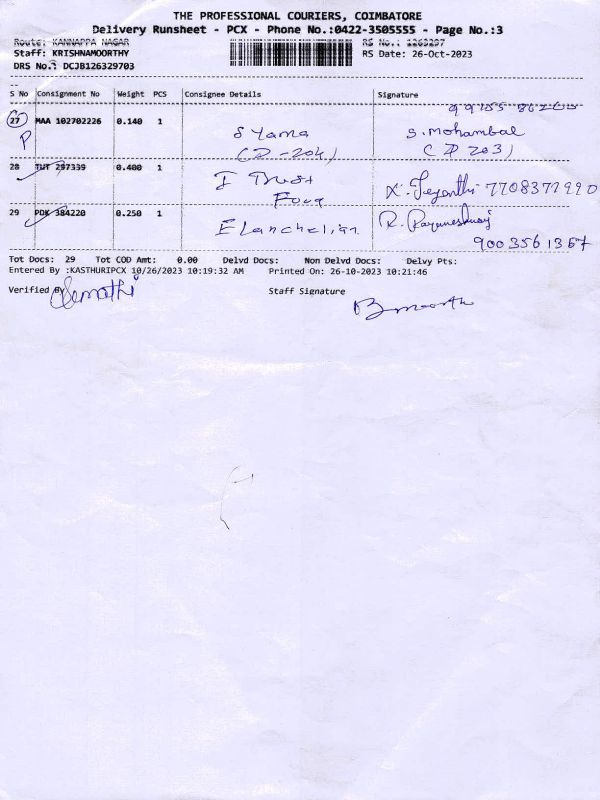 THE PROFESSIONAL COURIERS, COIMBATORE
Delivery Runsheet - PCX - Phone No.:0422-3505555 - Page No.:3
Route: KANNAPPA NAGAR RS No.: 1263297
Staff: KRISHNAMOORTHY RS Date: 26-Oct-2023
DRS No.: DCJB126329703
S No Consignment No Weight PCS Consignee Details Signature
27 MAA 102702226 0.140 1 S Yama S. Mohambal
P (D-204) (D 203)
28 TUT 297339 0.400 1 I Trust X. Jeyanthi 7708371990
29 PDK 384220 0.250 1 Elanchelian R.
9003561367
Tot Docs: 29 Tot COD Amt: 0.00 Delvd Docs: Non Delvd Docs: Delvy Pts:
Entered By :KASTHURIPCX 10/26/2023 10:19:32 AM Printed On: 26-10-2023 10:21:46
Verified By Staff Signature